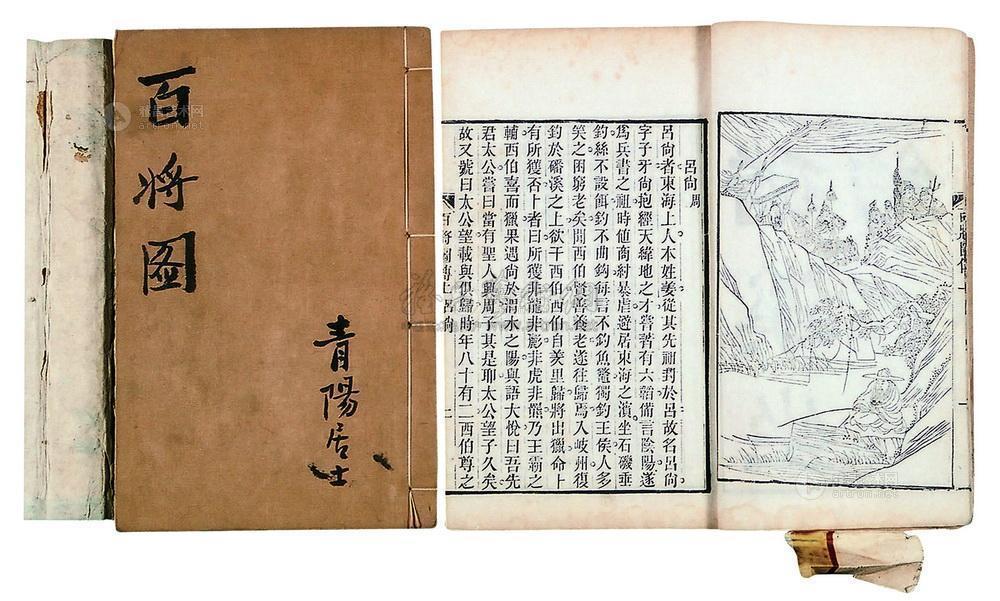 百将圖
青陽居士
呂尚 周
呂尚者東海上人本姓姜從其先祖封於呂故名呂尚
字子牙尚抱經天緯地之才嘗著有六韜備言陰陽遂
爲兵書之祖時値商紂暴虐遊居東海之濱坐石磯垂
釣絲不設餌釣不曲鈎每言不釣魚鼈獨釣王侯人多
笑之困窮老矣聞西伯賢善養老遂往歸焉入岐州復
釣於磻溪之上欲干西伯西伯自羑里歸將出獵命卜
有所獲否卜者曰所獲非龍非彲非虎非羆乃王霸之
輔西伯喜而獵果遇尚於渭水之陽與語大悅曰吾先
君太公嘗曰當有聖人興周子其是耶太公望子久矣
故又號曰太公望載與俱歸時年八十有二西伯尊之
百將圖傳上 呂尚
二
雅昌艺术网
artron.net
artron.net